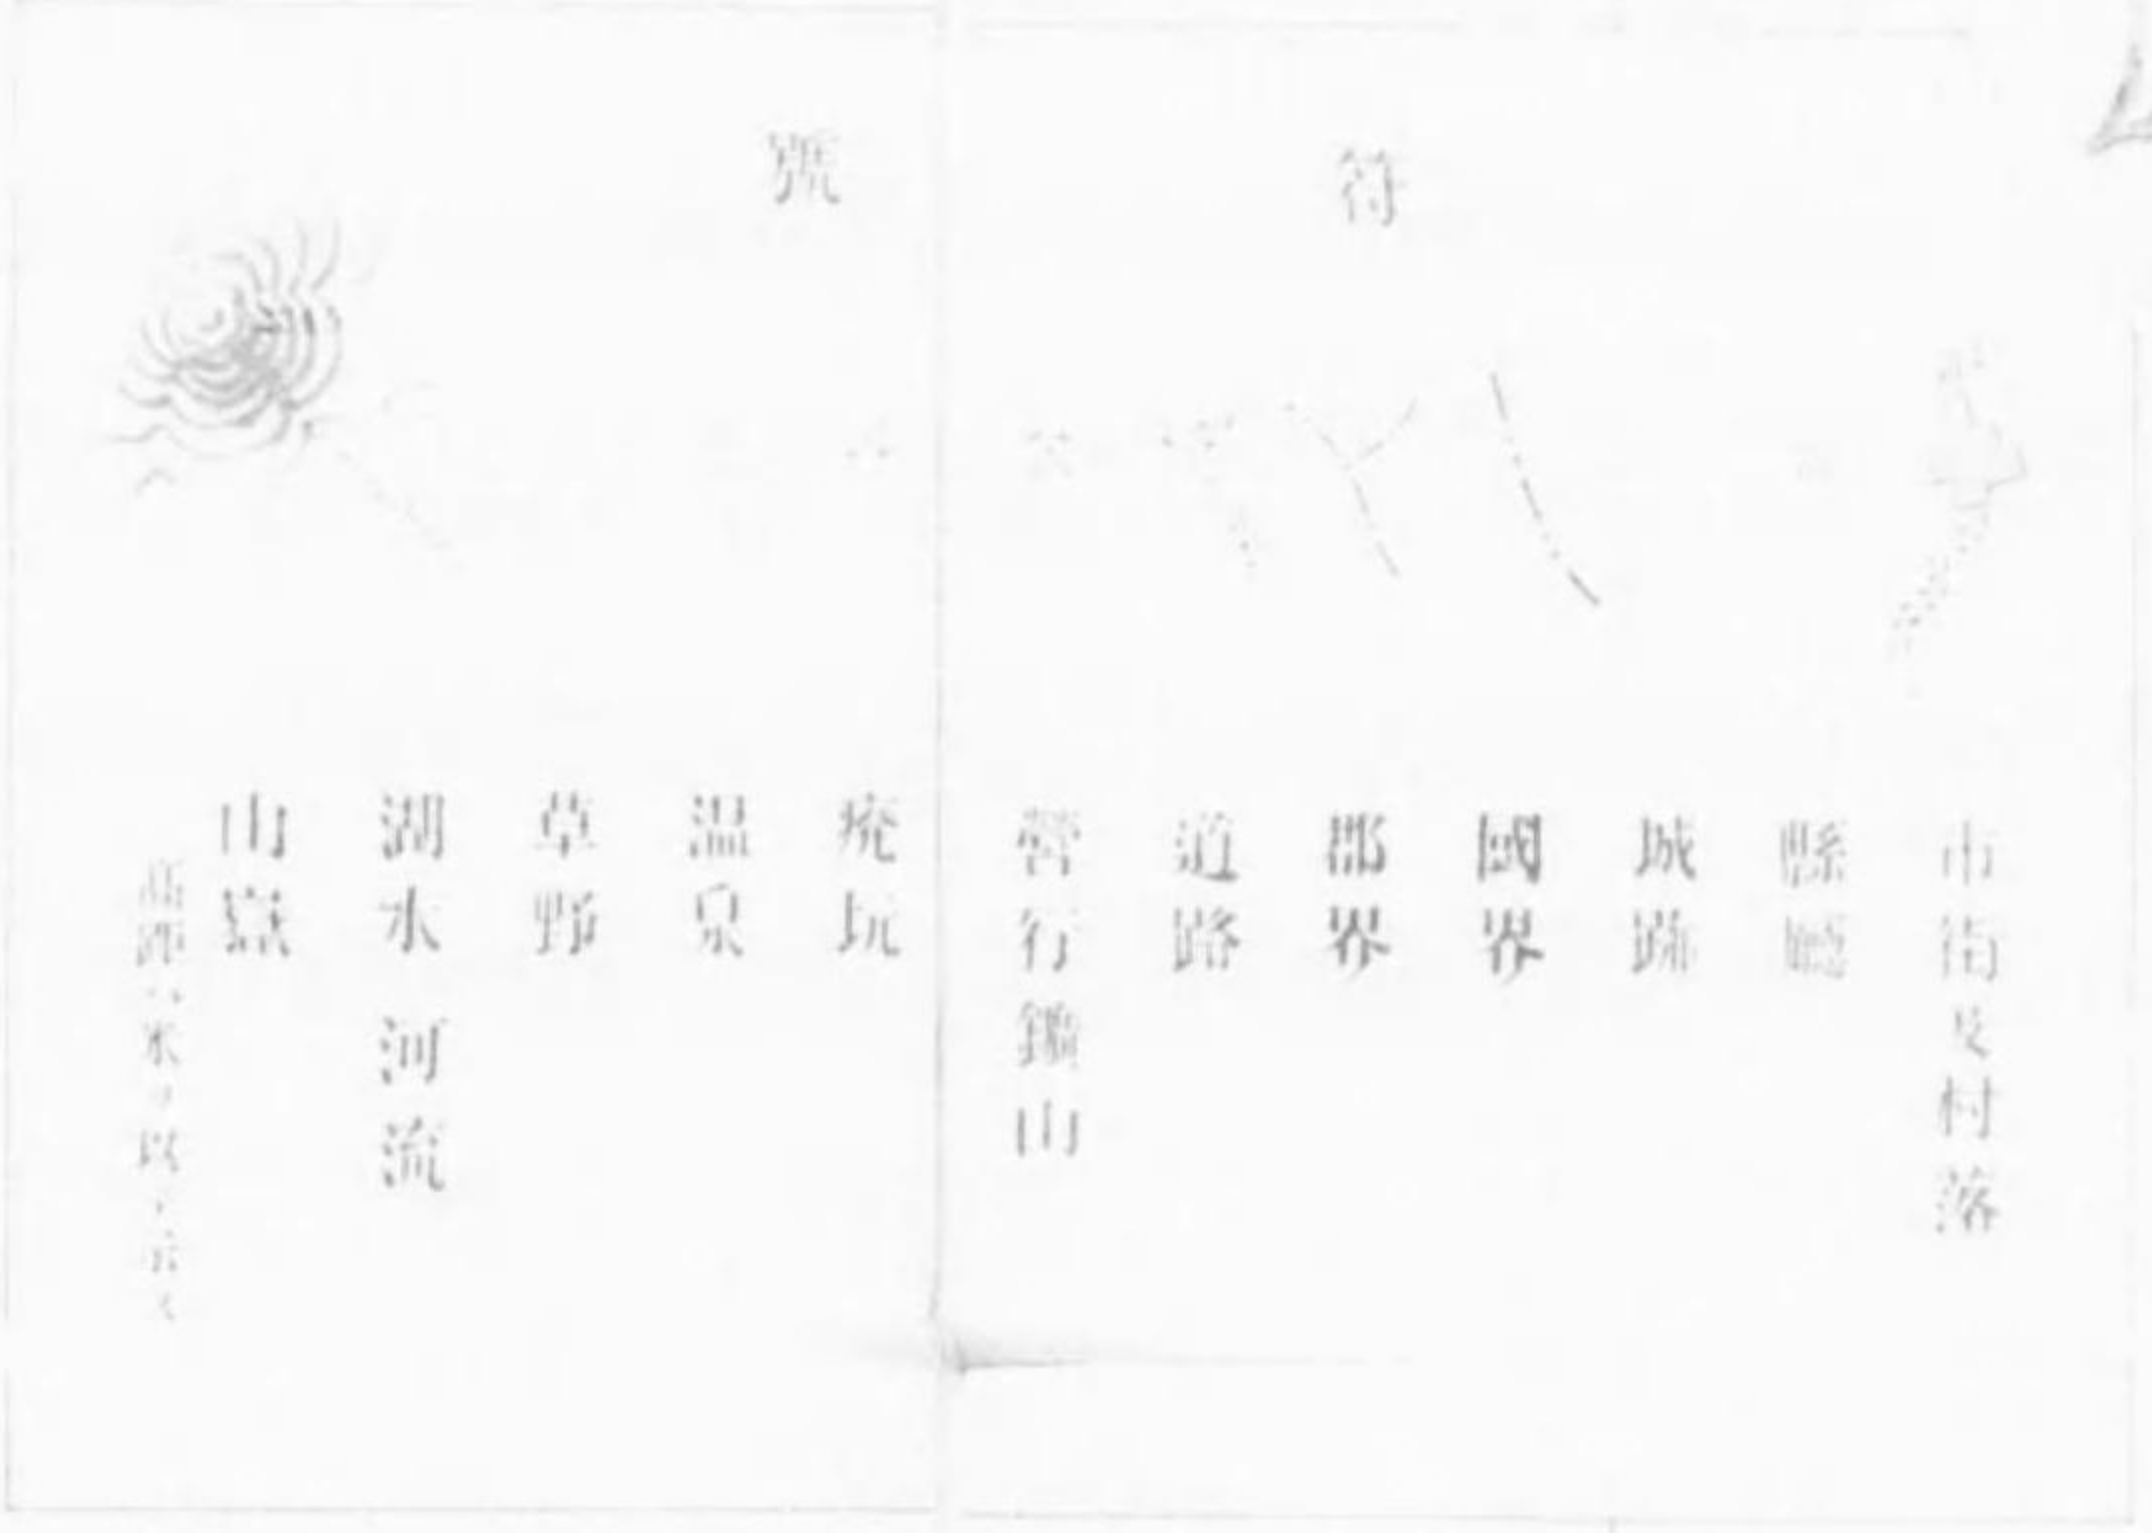 符號
市街及村落
縣廳
城跡
國界
郡界
道路
營行鑛山
廃坑
温泉
草野
湖水 河流
山嶽
高距ハ米ヲ以テ云フ